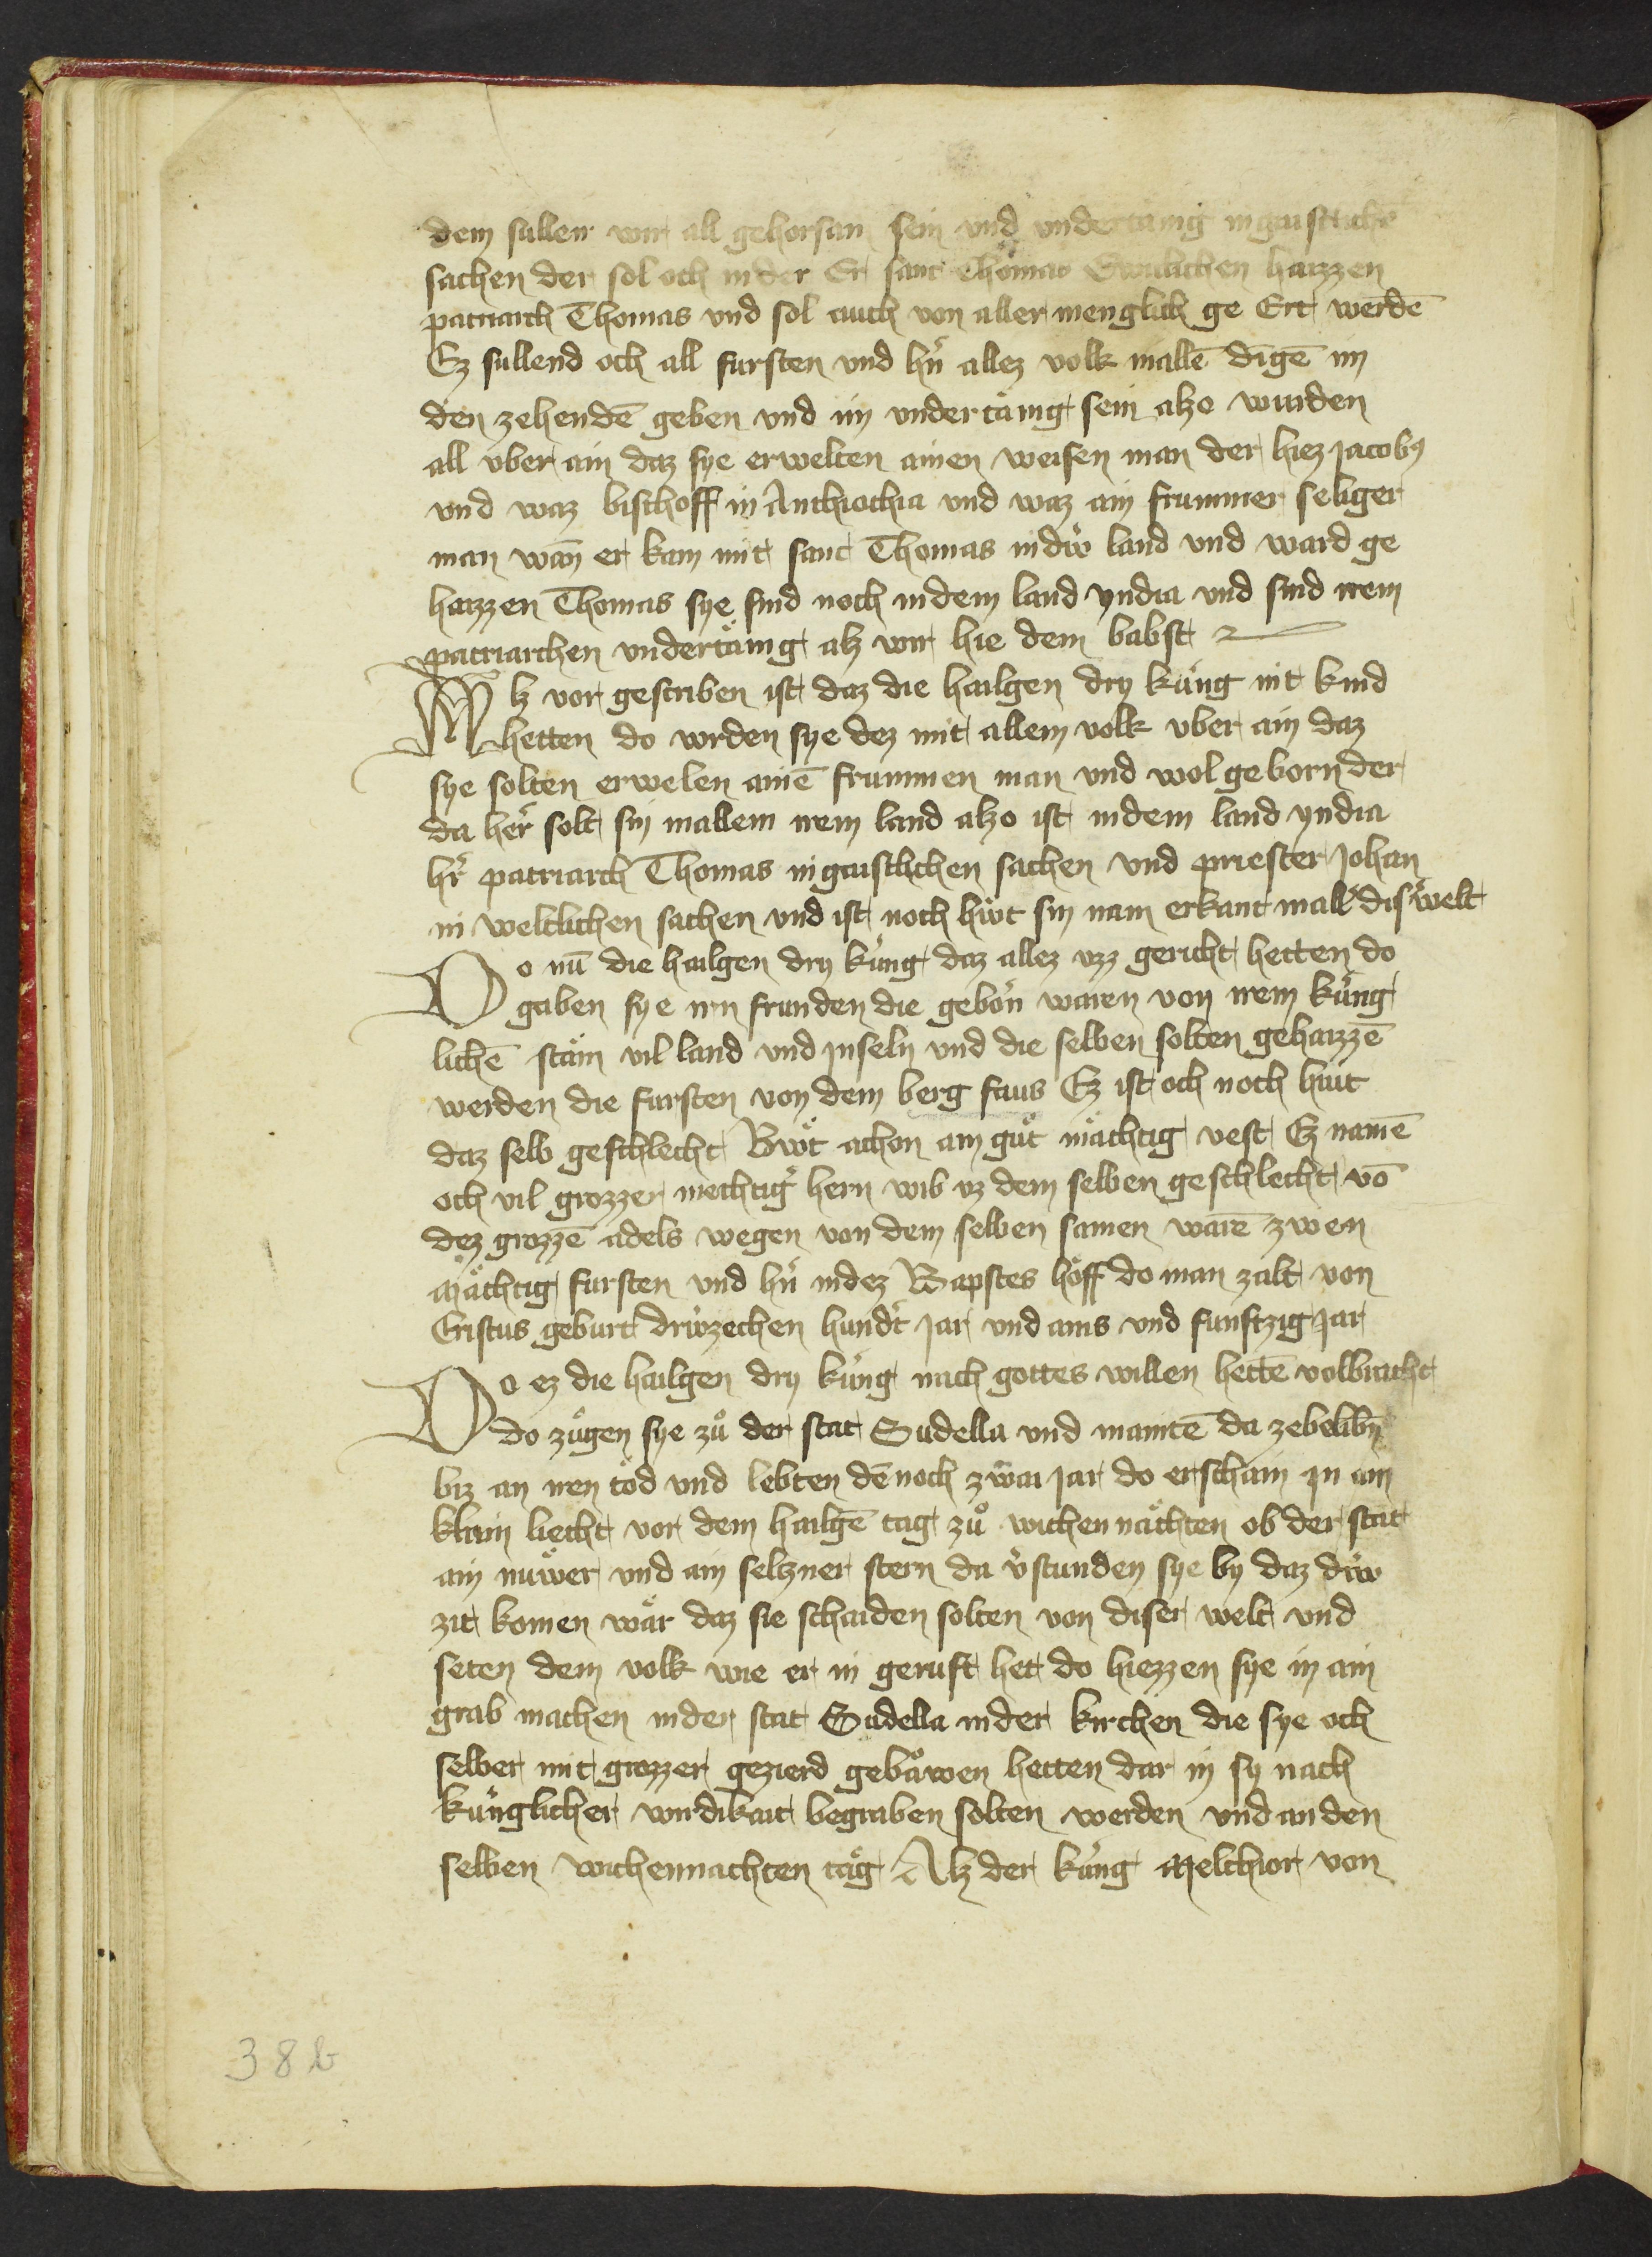 dem sullen wir all gehorsam sein vnd vndertänig in gaistlichē
sachen der sol och in der Er sant Thomas Ewulichen haizzen
patriarch Thomas vnd sol auch von aller menglich ge Ert werdē
Ez sullend och all fursten vnd hn̄ allez volk in allē dīgē im
den zehendē geben vnd im vndertänig sein alzo wurden
all vber ain daz sye erwelten ainen weisen man der hiez jacobꝰ
vnd waz bischoff in Anthiochia vnd waz ain frummer seliger
man wan̄ er kam mit sant Thomas in dw̓ land vnd ward ge
haizzen Thomas sye sind noch in dem land yndia vnd sind irem
patriarchen vndertänig alz wir hie dem babst
Alz vor gescriben ist daz die hailgen dry küng nit kind
hetten do wrden sye dez mit allem volk vber ain daz
sye solten erwelen ainē frummen man vnd wol geborn der
da her̓ solt sin in allem irem land alzo ist in dem land yndia
hr̓ patriarch Thomas in gaistlichen sachen vnd priester Johan
in weltlichen sachen vnd ist noch hẅt sin nam erkant in all dis̓ welt
Do nū die hailgen dry küng daz allez vzz gericht hetten do
gaben sye irn frunden die gebōn waren von irem küng
lichē stäm vil land vnd jnseln vnd die selben solten gehaizzē
werden die fursten von dem berg faus Ez ist och noch hiut
daz selb geschlecht Bẅt achon am gůt mächtig vest Ez namē
och vil grozzer mechtig̓ hern wib vz dem selben geschlecht vō
dez grozzē adels wegen von dem selben samen warē zwen
Mächtig fursten vnd hn̓ in dez Bapstes höff do man zalt von
Cristus geburt drẅzechen hund̓t jar vnd ains vnd funftzig jar
Do ez die hailgen dry küng nach gottes willen hettē volbracht
do zügen sye zů der stat Sudella vnd maintē da ze belibn̄
biz an iren tod vnd lebten dēnoch zwai jar do erschain in ain
klain liecht vor dem hailgē tag zů wichennächten ob der stat
ain nuwer vnd ain selzner stern da v̓stunden sye by daz dẅ
zit komen wär daz sie schaiden solten von diser welt vnd
seten dem volk wie er in geruft het do hiezzen sye in ain
grab machen in der stat Sudella in der kirchen die sye och
selber mit grozzer gezierd gebäwen hetten dar in sy nach
künglicher wirdikait begraben solten werden vnd an den
selben wichennachten täg Alz der küng Melchior von
38b